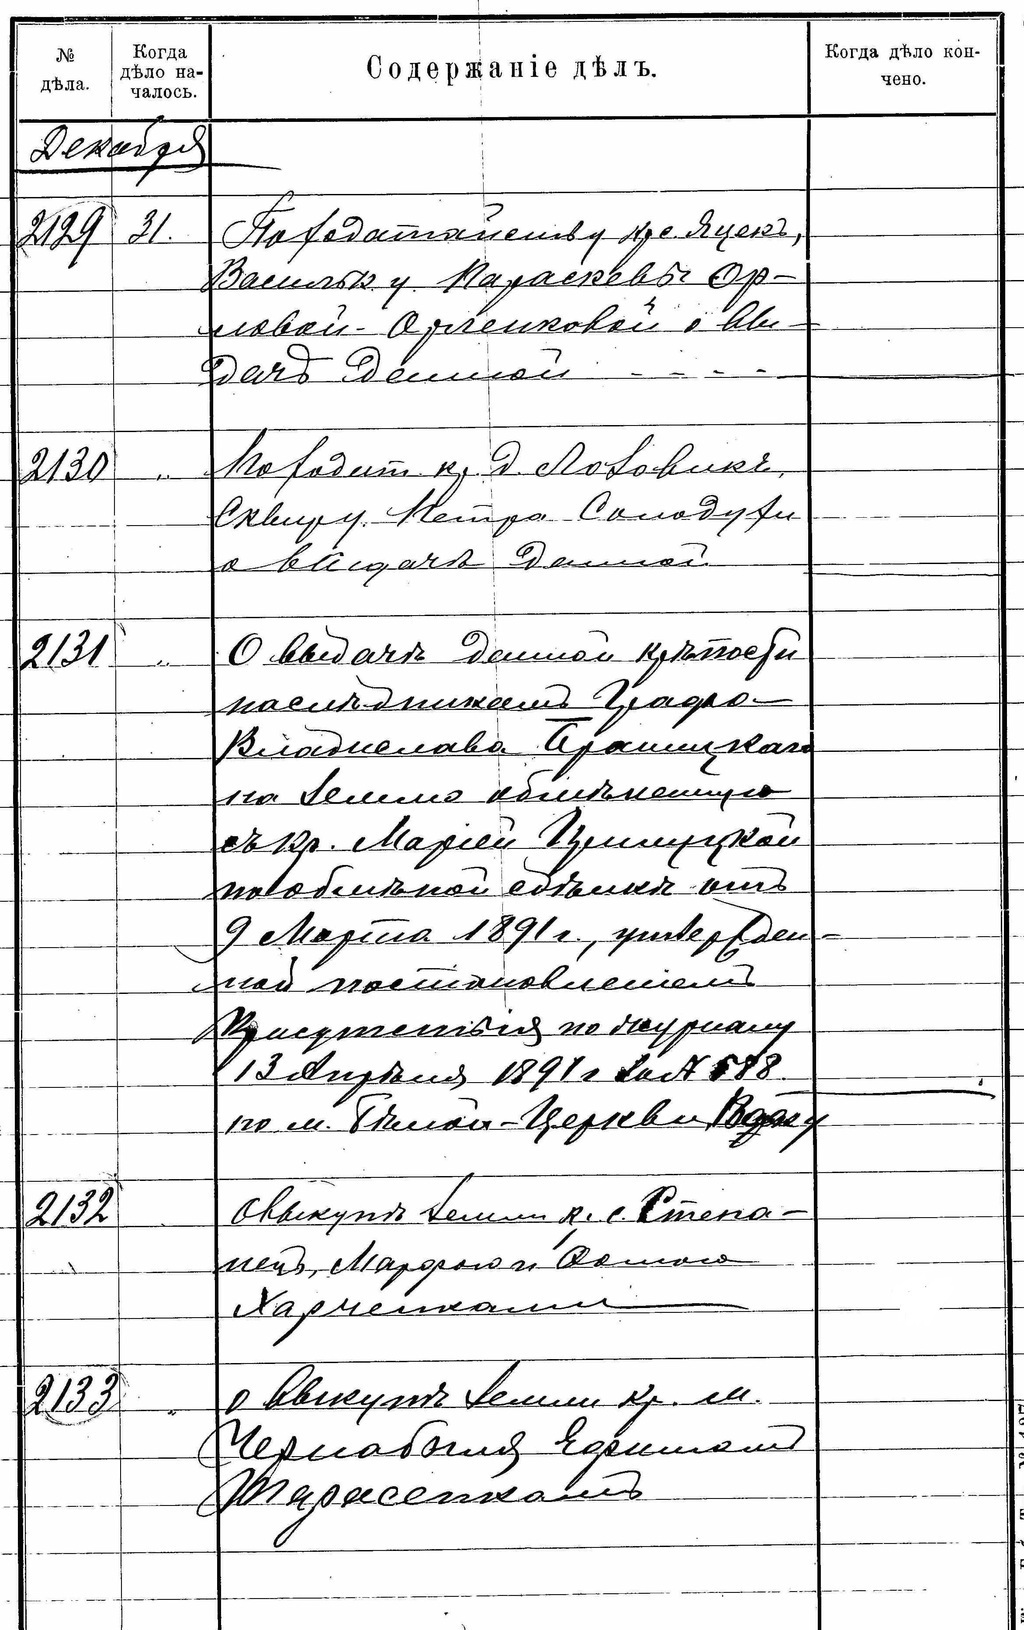 № дѣла.
Когда дѣло на-чалось.
Содержаніе дѣлъ.
Когда дѣло кон-чено.
Декабря
2129 31. По ходатайству кр. с. Яцекъ,
Васильк. у. Параскевы Ор-
ловой-Орленковой о вы-
дачѣ данной - - - -
2130 „ По ходат. кр. д. Лозовикъ,
Сквир. у. Петра Солодухи
о выдачѣ данной
2131 „ О выдачѣ данной крѣпости
наслѣдникамъ Графа
Владислава Браницкаго
на землю обмѣненную
съ кр. Маріей
по обмѣнной сдѣлкѣ отъ
9 Марта 1891 г., утвержден-
ной постановленіемъ
Присутствія по журналу
13 Апрѣля 1891 г за № 588
по м. Бѣлой-Церкви
2132 О выкупѣ земли кр. с. Степа-
нецъ, Марфою и
Харченками
2133 „ о выкупѣ земли кр. м.
Чернобыля Ефимомъ
Тарасенкомъ